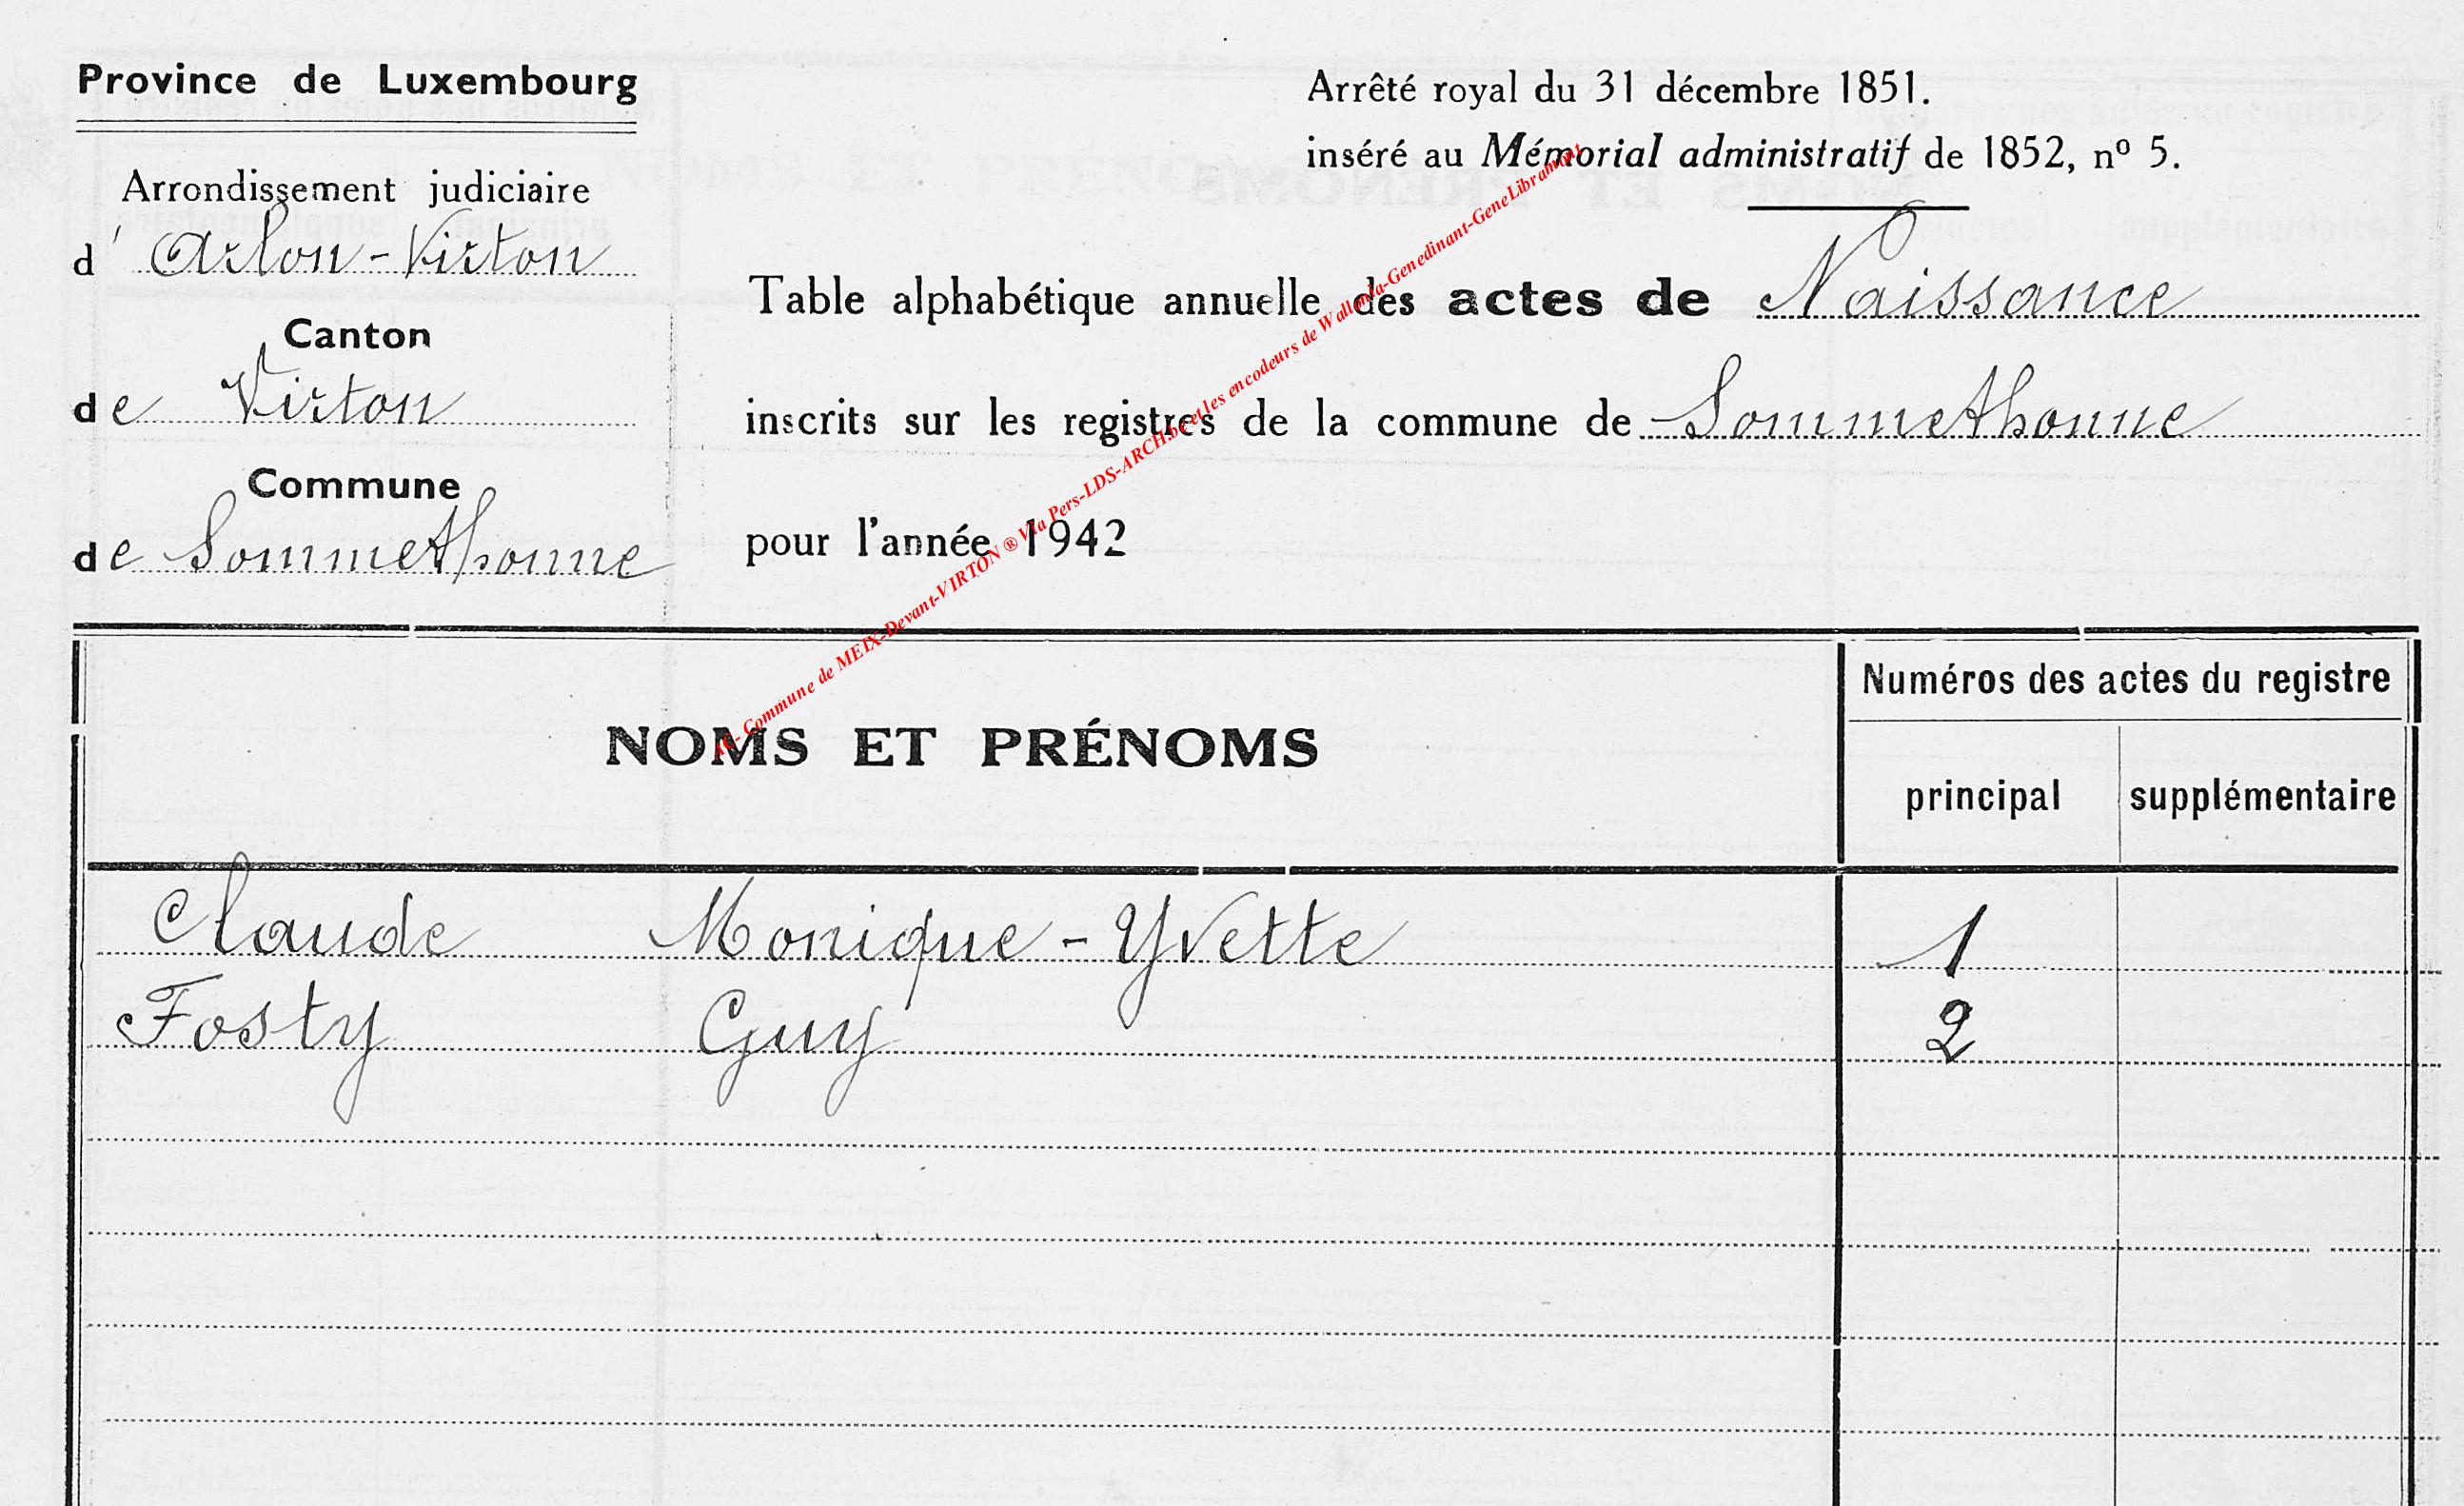 Province de Luxembourg
Arrondissement judiciaire
d' Arlon-Virton
Canton
de Virton
Commune
de Sommethonne
Arrêté royal du 31 décembre 1851.
inséré au Mémorial administratif de 1852, nº 5.
Table alphabétique annuelle des actes de Naissance
inscrits sur les registres de la commune de Sommethonne
pour l'année 1942
AC- Commune de MEIX-Devant-VIRTON ® Via Pers-LDS-ARCH.be et les encodeurs de Wallonia-Genedinant-GeneLibramont
NOMS ET PRÉNOMS
Numéros des actes du registre
principal supplémentaire
Claude Monique-Yvette 1
Fosty Guy 2